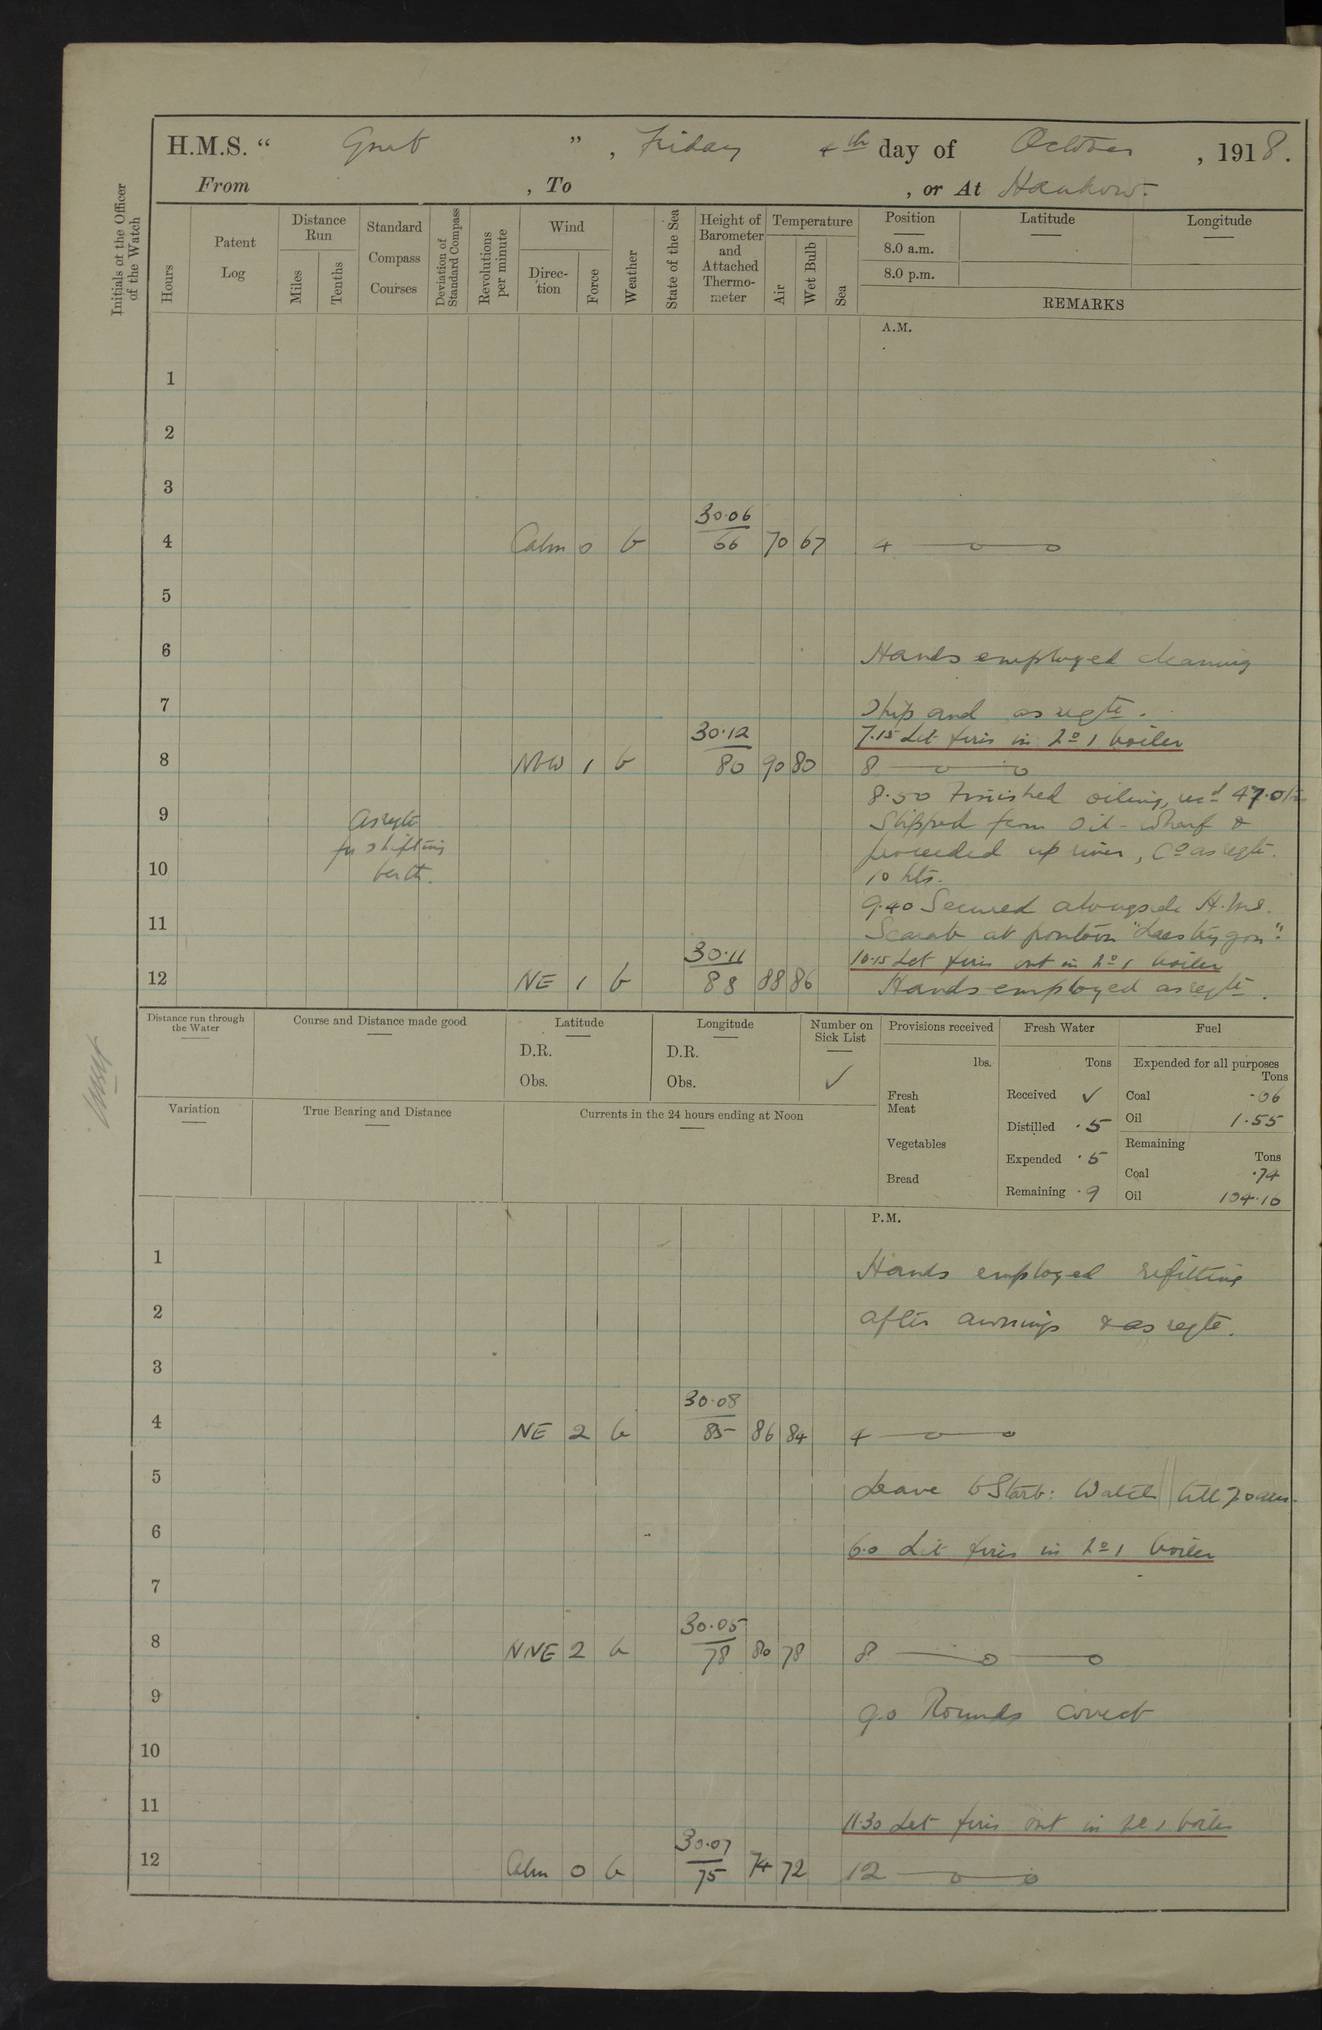 H.M.S. “ Gnat ” , Friday 4th day of October , 1918.
From , To , or At Hankow.
Initials of the Officer of the Watch
Hours
Patent Log
Distance Run
Miles
Tenths
Standard Compass Courses
Deviation of Standard Compass
Revolutions per minute
Wind
Direc-tion
Force
Weather
State of the Sea
Height of Barometer and Attached Thermo-meter
Temperature
Air
Wet Bulb
Sea
Position
8.0 a.m.
8.0 p.m.
Latitude
Longitude
REMARKS
A.M.
1
2
3
30.06
4 Calm 0 b 66 70 67 4 — o — o
5
6 Hands employed cleaning
7 Ship and as reqte.
30.12 7.15 Lit fires in No 1 boiler
8 NW 1 b 80 90 80 8 — o — o
8.50 Finished oiling, recd 47.0
9 As reqte Slipped from Oil-Wharf &
for shifting proceeded up river, Co as reqte.
10 berth. 10 kts.
9.40 Secured alongside H.M.S.
11 Scarab at pontoon
30.11 10.15 Let fires out in No 1 boiler
12 NE 1 b 88 88 86 Hands employed as reqte.
Distance run through the Water
Course and Distance made good
Latitude
D.R.
Obs.
Longitude
D.R.
Obs.
Number on Sick List
✓
Provisions received
lbs.
Fresh Meat
Vegetables
Bread
Fresh Water
Tons
Received ✓
Distilled .5
Expended .5
Remaining .9
Fuel
Expended for all purposes
Tons
Coal .06
Oil 1.55
Remaining
Tons
Coal .74
Oil 104.10
Variation
True Bearing and Distance
Currents in the 24 hours ending at Noon
P.M.
1 Hands employed refitting
2 after awnings & as reqte.
3
30.08
4 NE 2 b 85 86 84 4 — o — o
5 Leave to Starb: Watch till 7.0 am.
6 6.0 Lit fires in No 1 boiler
7
30.05
8 NNE 2 b 78 80 78 8 — o — o
9 9.0 Rounds correct
10
11 11.30 Let fires out in No 1 boiler
30.07
12 Calm 0 b 75 74 72 12 — o — o